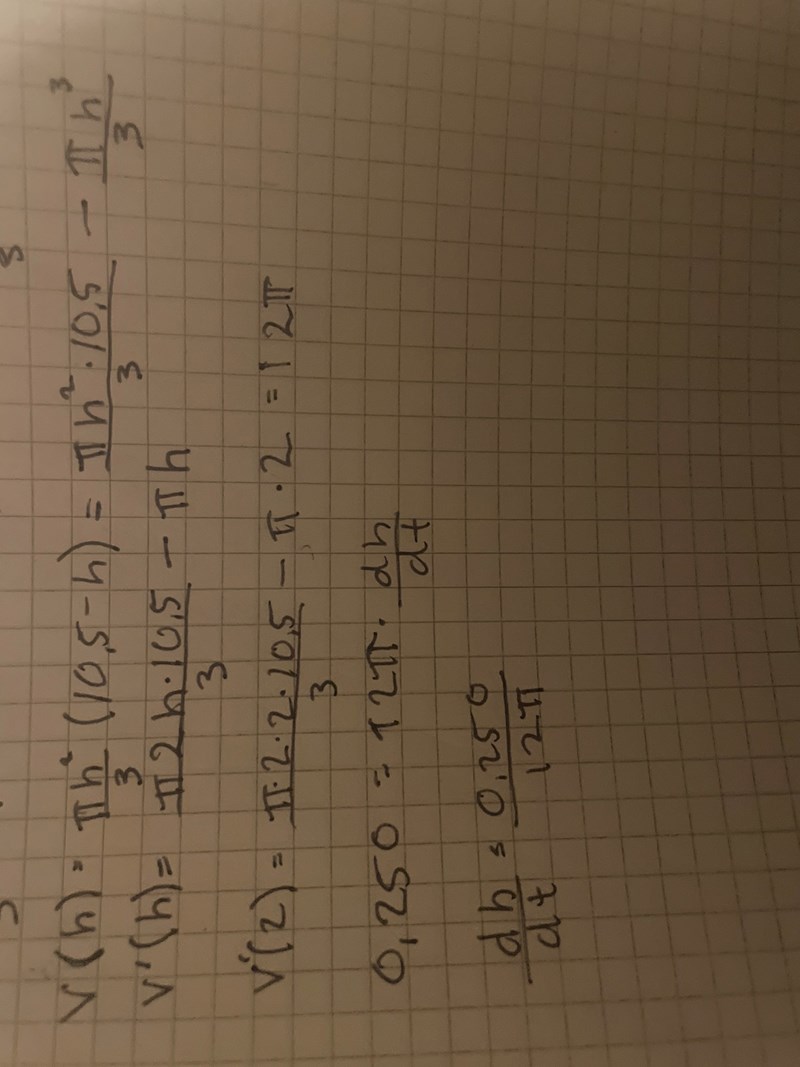 V(h) = πh²/3 (10,5-h) = πh²·10,5/3 - πh³/3
V'(h) = π2h·10,5/3 - πh
V'(2) = π·2·2·10,5/3 - π·2 = 12π
0,250 = 12π · dh/dt
dh/dt = 0,250/12π